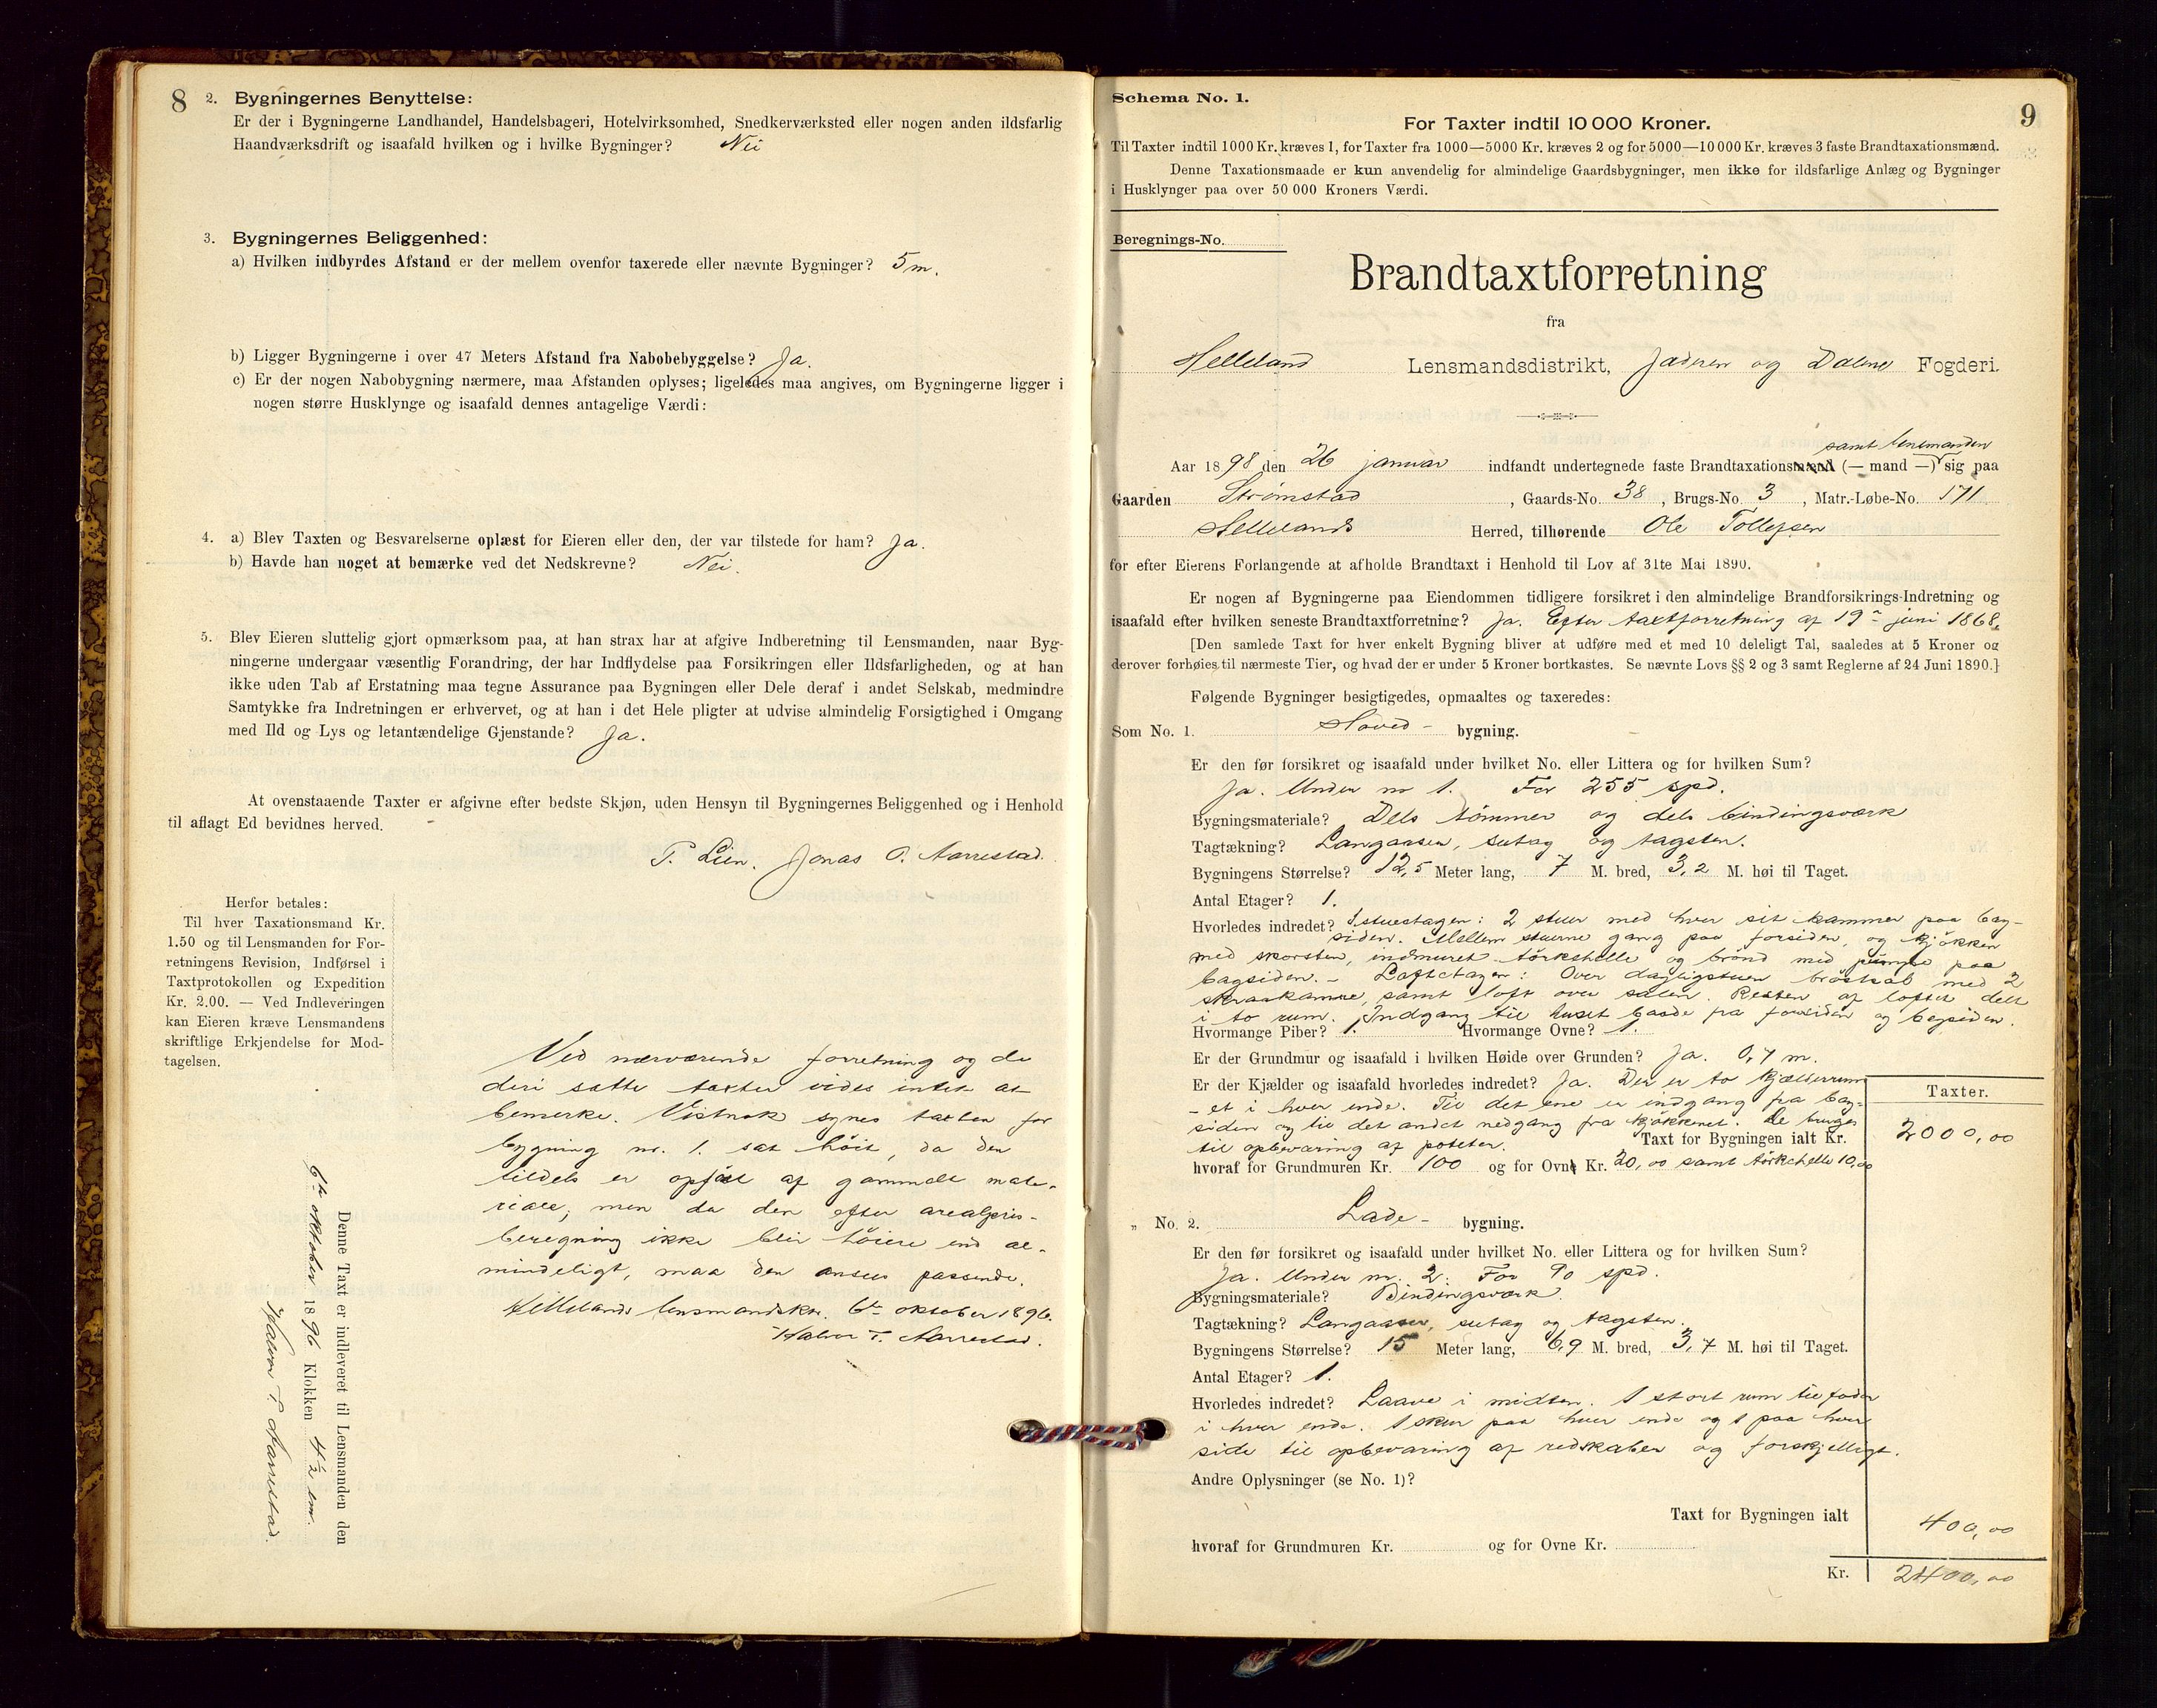 8
2. Bygningernes Benyttelse:
Er der i Bygningerne Landhandel, Handelsbageri, Hotelvirksomhed, Snedkerværksted eller nogen anden ildsfarlig
Haandværksdrift og isaafald hvilken og i hvilke Bygninger? Nei
3. Bygningernes Beliggenhed:
a) Hvilken indbyrdes Afstand er der mellem ovenfor taxerede eller nævnte Bygninger? 5 m.
b) Ligger Bygningerne i over 47 Meters Afstand fra Nabobebyggelse? Ja.
c) Er der nogen Nabobygning nærmere, maa Afstanden oplyses; ligeledes maa angives, om Bygningerne ligger i
nogen større Husklynge og isaafald dennes antagelige Værdi:
4. a) Blev Taxten og Besvarelserne oplæst for Eieren eller den, der var tilstede for ham? Ja.
b) Havde han noget at bemærke ved det Nedskrevne? Nei.
5. Blev Eieren sluttelig gjort opmærksom paa, at han strax har at afgive Indberetning til Lensmanden, naar Byg-
ningerne undergaar væsentlig Forandring, der har Indflydelse paa Forsikringen eller Ildsfarligheden, og at han
ikke uden Tab af Erstatning maa tegne Assurance paa Bygningen eller Dele deraf i andet Selskab, medmindre
Samtykke fra Indretningen er erhvervet, og at han i det Hele pligter at udvise almindelig Forsigtighed i Omgang
med Ild og Lys og letantændelige Gjenstande? Ja.
At ovenstaaende Taxter er afgivne efter bedste Skjøn, uden Hensyn til Bygningernes Beliggenhed og i Henhold
til aflagt Ed bevidnes herved.
P. Lien. Jonas O. Aarrestad.
Herfor betales:
Til hver Taxationsmand Kr.
1.50 og til Lensmanden for For-
retningens Revision, Indførsel i
Taxtprotokollen og Expedition
Kr. 2.00. — Ved Indleveringen
kan Eieren kræve Lensmandens
skriftlige Erkjendelse for Mod-
tagelsen.
Ved nærværende forretning og de
deri satte taxter vides intet at
bemerke. Vistnok synes taxten for
bygning nr. 1. sat høit, da den
tildels er opført af gammelt mate-
riale; men da den efter arealpris-
beregning ikke blir høiere end al-
mindeligt, maa den ansees passende.
Hellelands lensmandsktr. 6te oktober 1896.
Halvor T. Aarrestad.
Denne Taxt er indleveret til Lensmanden den
6te oktober 1896 Klokken 4½ em.
Halvor T. Aarrestad.
9
Schema No. 1.
For Taxter indtil 10 000 Kroner.
Til Taxter indtil 1000 Kr. kræves 1, for Taxter fra 1000—5000 Kr. kræves 2 og for 5000—10000 Kr. kræves 3 faste Brandtaxationsmænd.
Denne Taxationsmaade er kun anvendelig for almindelige Gaardsbygninger, men ikke for ildsfarlige Anlæg og Bygninger
i Husklynger paa over 50 000 Kroners Værdi.
Beregnings-No.
Brandtaxtforretning
fra
Helleland Lensmandsdistrikt, Jæderen og Dalene Fogderi.
samt lensmanden
Aar 1898 den 26 januar indfandt undertegnede faste Brandtaxationsmænd (— mand —) sig paa
Gaarden Strømstad, Gaards-No. 38, Brugs-No. 3, Matr.-Løbe-No. 171
Hellelands Herred, tilhørende Ole Tollefsen
for efter Eierens Forlangende at afholde Brandtaxt i Henhold til Lov af 31te Mai 1890.
Er nogen af Bygningerne paa Eiendommen tidligere forsikret i den almindelige Brandforsikrings-Indretning og
isaafald efter hvilken seneste Brandtaxtforretning? Ja. Efter taxtforretning af 19de juni 1868.
[Den samlede Taxt for hver enkelt Bygning bliver at udføre med et med 10 deleligt Tal, saaledes at 5 Kroner og
derover forhøies til nærmeste Tier, og hvad der er under 5 Kroner bortkastes. Se nævnte Lovs §§ 2 og 3 samt Reglerne af 24 Juni 1890.]
Følgende Bygninger besigtigedes, opmaaltes og taxeredes:
Som No. 1. Hoved- bygning.
Er den før forsikret og isaafald under hvilket No. eller Littera og for hvilken Sum?
Ja. Under nr 1. For 255 spd.
Bygningsmateriale? Dels tømmer og dels bindingsværk
Tagtækning? Langaasen, sutag og tagsten.
Bygningens Størrelse? 12,5 Meter lang, 7 M. bred, 3,2 M. høi til Taget.
Antal Etager? 1.
Hvorledes indredet? I stuestagen: 2 stuer med hver sit kammer paa bag-
siden. Mellem stuerne gang paa forsiden, og kjøkken
med skorsten, indmuret tørkehelle og brønd med pumpe paa
bagsiden. – Loftetagen: Over dagligstuen brøstkal med 2
skraakamre, samt loft over salen. Resten af loftet delt
i to rum. Indgang til huset baade fra forsiden og bagsiden.
Hvormange Piber? 1. Hvormange Ovne? 1.
Er der Grundmur og isaafald i hvilken Høide over Grunden? Ja. 0,7 m.
Er der Kjælder og isaafald hvorledes indredet? Ja. Der er to kjælderrum
- et i hver ende. Til det ene er indgang fra bag-
siden og til det andet nedgang fra kjøkkenet. De bruges
til opbevaring af poteter.
Taxter.
Taxt for Bygningen ialt Kr. 2000,00
hvoraf for Grundmuren Kr. 100 og for Ovne Kr. 20,00 samt tørkehelle 10,00
„ No. 2. Lade- bygning.
Er den før forsikret og isaafald under hvilket No. eller Littera og for hvilken Sum?
Ja. Under nr. 2. For 90 spd.
Bygningsmateriale? Bindingsværk.
Tagtækning? Langaasen, sutag og tagsten.
Bygningens Størrelse? 15 Meter lang, 6,9 M. bred, 3,7 M. høi til Taget.
Antal Etager? 1.
Hvorledes indredet? Laave i midten. 1 stort rum til foder
i hver ende. 1 skur paa hver ende og 1 paa hver
side til opbevaring af redskaber og forskjelligt.
Andre Oplysninger (se No. 1)?
Taxt for Bygningen ialt 400,00
hvoraf for Grundmuren Kr. og for Ovne Kr.
Kr. 2400,00